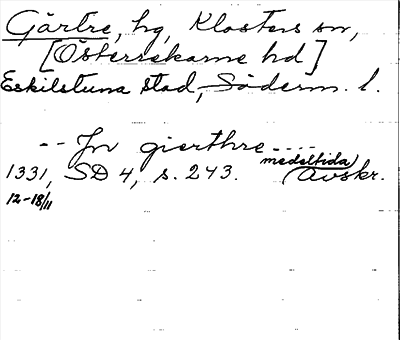 Gärtre, hg, Klosters sn,
[Österrekarne hd]
Eskilstuna stad, Söderm. l.
-- Jn gierthre ----
medeltida
1331, SD 4, s. 243. Avskr.
12-18/11